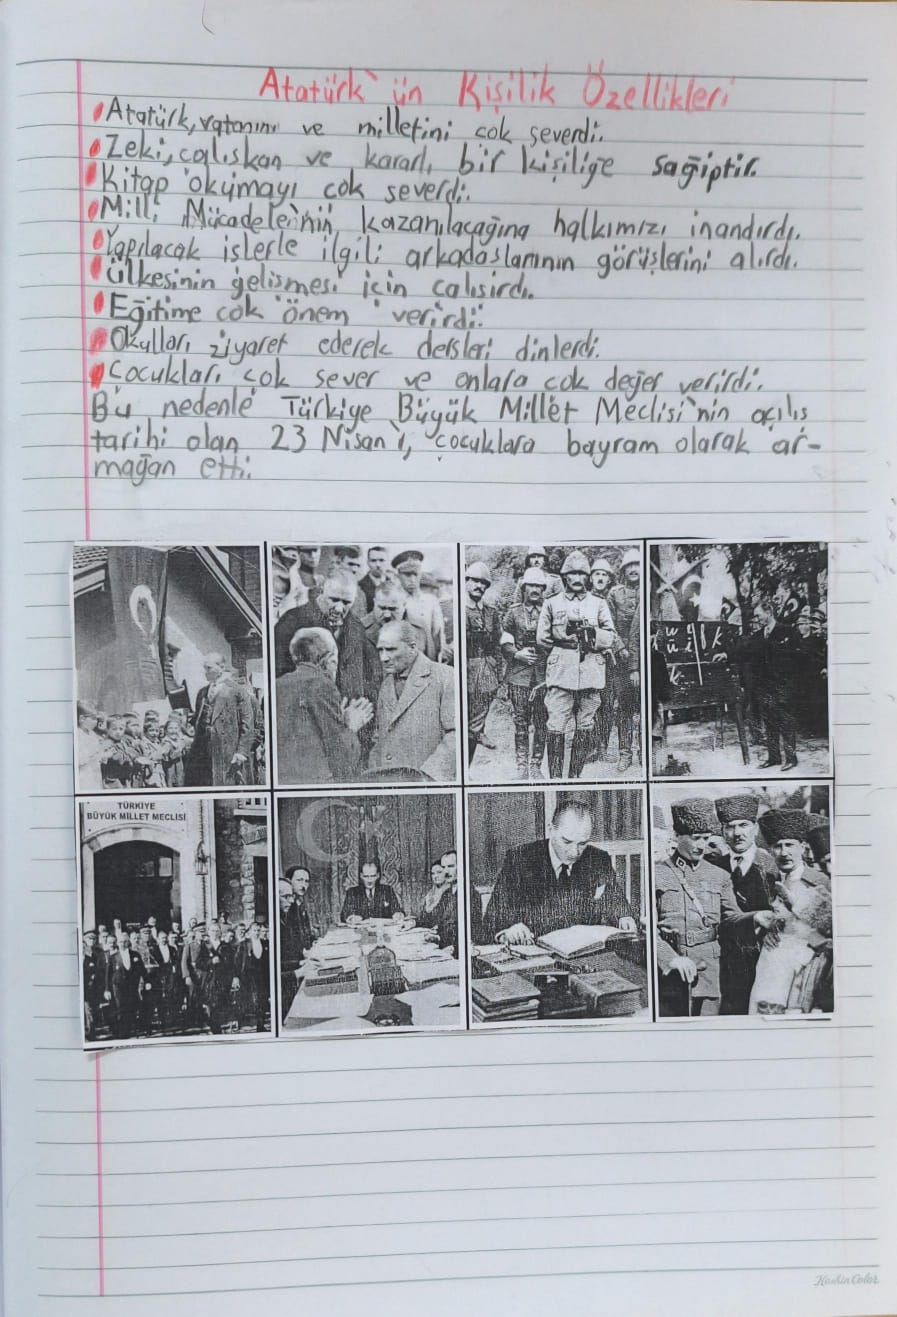 Atatürk'ün Kişilik Özellikleri
Atatürk, vatanını ve milletini çok severdi.
Zeki, çalışkan ve kararlı bir kişiliğe sağiptir.
Kitap okumayı çok severdi.
Milli Mücadele'nin kazanılacağına halkımızı inandırdı.
Yapılacak işlerle ilgili arkadaşlarının görüşlerini alırdı.
Ülkesinin gelişmesi için çalışırdı.
Eğitime çok önem verirdi.
Okulları ziyaret ederek dersleri dinlerdi.
Çocukları çok sever ve onlara çok değer verirdi.
Bu nedenle Türkiye Büyük Millet Meclisi'nin açılış
tarihi olan 23 Nisan'ı, çocuklara bayram olarak ar-
mağan etti.
TÜRKİYE
BÜYÜK MİLLET MECLİSİ